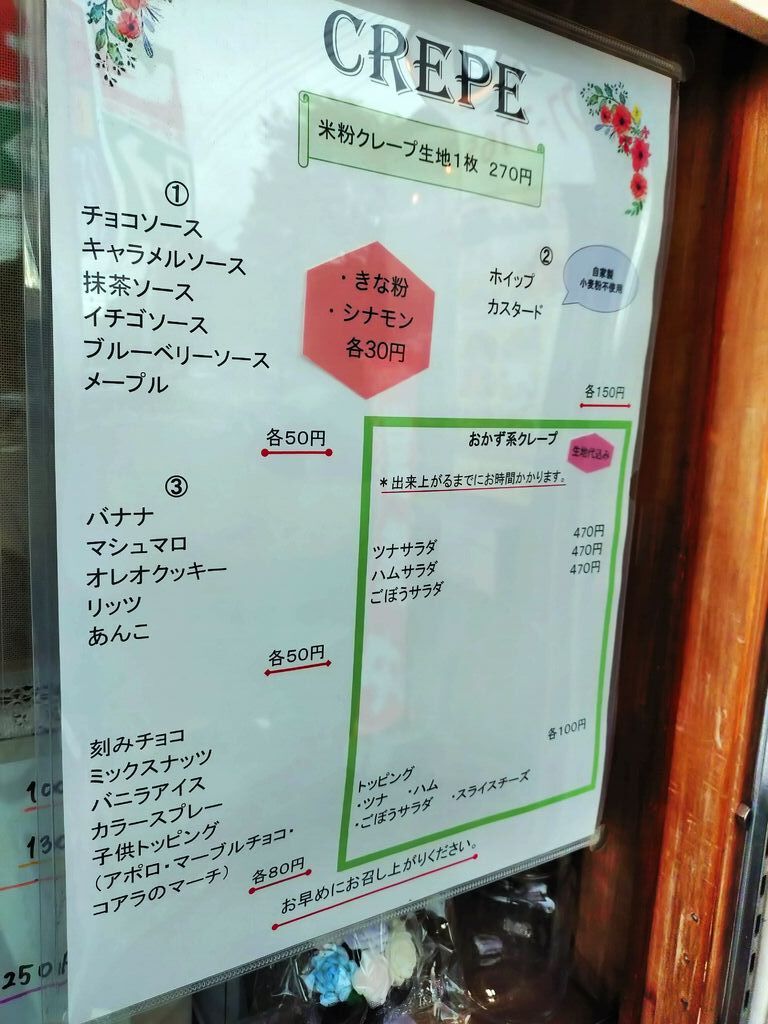 CREPE
米粉クレープ生地1枚 270円
①
チョコソース
キャラメルソース
抹茶ソース
イチゴソース
ブルーベリーソース
メープル
各50円
・きな粉
・シナモン
各30円
②
ホイップ
カスタード
自家製
小麦粉不使用
各150円
③
バナナ
マシュマロ
オレオクッキー
リッツ
あんこ
各50円
刻みチョコ
ミックスナッツ
バニラアイス
カラースプレー
子供トッピング
(アポロ・マーブルチョコ・
コアラのマーチ)
各80円
おかず系クレープ
生地代込み
*出来上がるまでにお時間かかります。
ツナサラダ 470円
ハムサラダ 470円
ごぼうサラダ 470円
各100円
トッピング
・ツナ ・ハム
・ごぼうサラダ ・スライスチーズ
お早めにお召し上がりください。
250